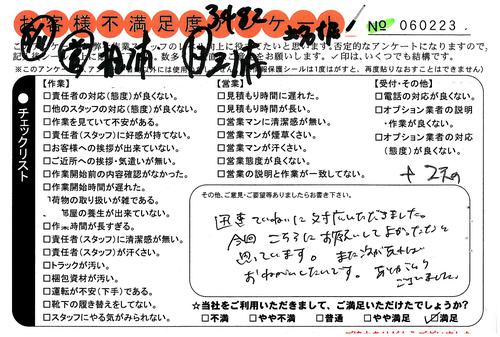 お客様不満足度アンケート
No 060223
※このアンケート
【作業】
□責任者の対応(態度)が良くない。
□他のスタッフの対応(態度)が良くない。
□作業を見ていて不安がある。
□責任者(スタッフ)に好感が持てない。
□お客様への挨拶が出来ていない。
□ご近所への挨拶・気遣いが無い。
□作業開始前の内容確認がなかった。
□作業開始時間が遅れた。
荷物の取り扱いが雑である。
部屋の養生が出来ていない。
□作業時間が長すぎる。
□責任者(スタッフ)に清潔感が無い。
□責任者(スタッフ)が汗臭い。
□トラックが汚い。
□梱包資材が汚い。
□運転が不安(下手)である。
□靴下の履き替えをしてない。
□スタッフにやる気がみられない。
【営業】
□見積もり時間に遅れた。
□見積もり時間が長い。
□営業マンに清潔感が無い。
□営業マンが煙草くさい。
□営業マンが汗くさい。
□営業態度が良くない。
□営業の説明と作業が一致してない。
【受付・その他】
□電話の対応が良くない。
□オプション業者の説明
・作業が良くない。
□オプション業者の対応
(態度)が良くない。
●チェックリスト
その他、ご意見・ご要望等ありましたらお書き下さい。
迅速ていねいに対応いただきました。
今回こちらにお願いしてよかったなと
思っています。また次があれば
おねがいしたいです。ありがとう
ございました。
☆当社をご利用いただきまして、ご満足いただけたでしょうか?
□不満 □やや不満 □普通 □やや満足 ☑満足